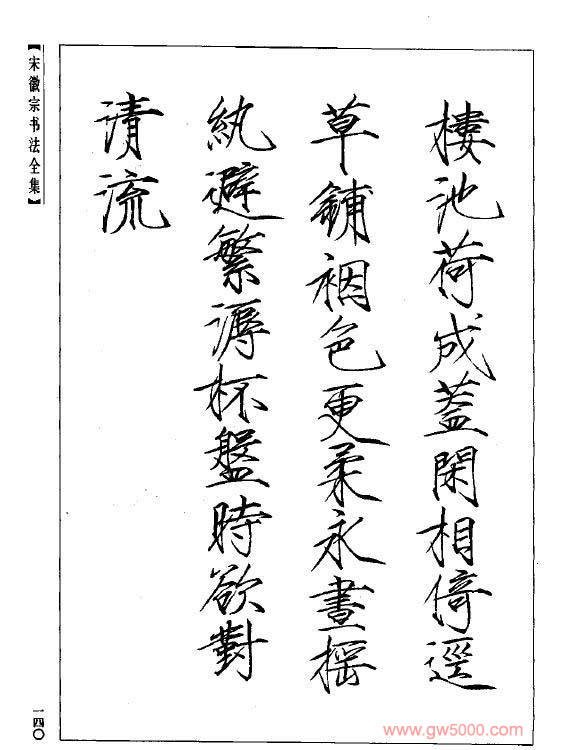 【宋徽宗书法全集】
樓池荷成蓋閑相倚逕
草鋪裀色更柔永晝搖
紈避繁溽杯盤時欲對
清流
一四〇
www.gw5000.com